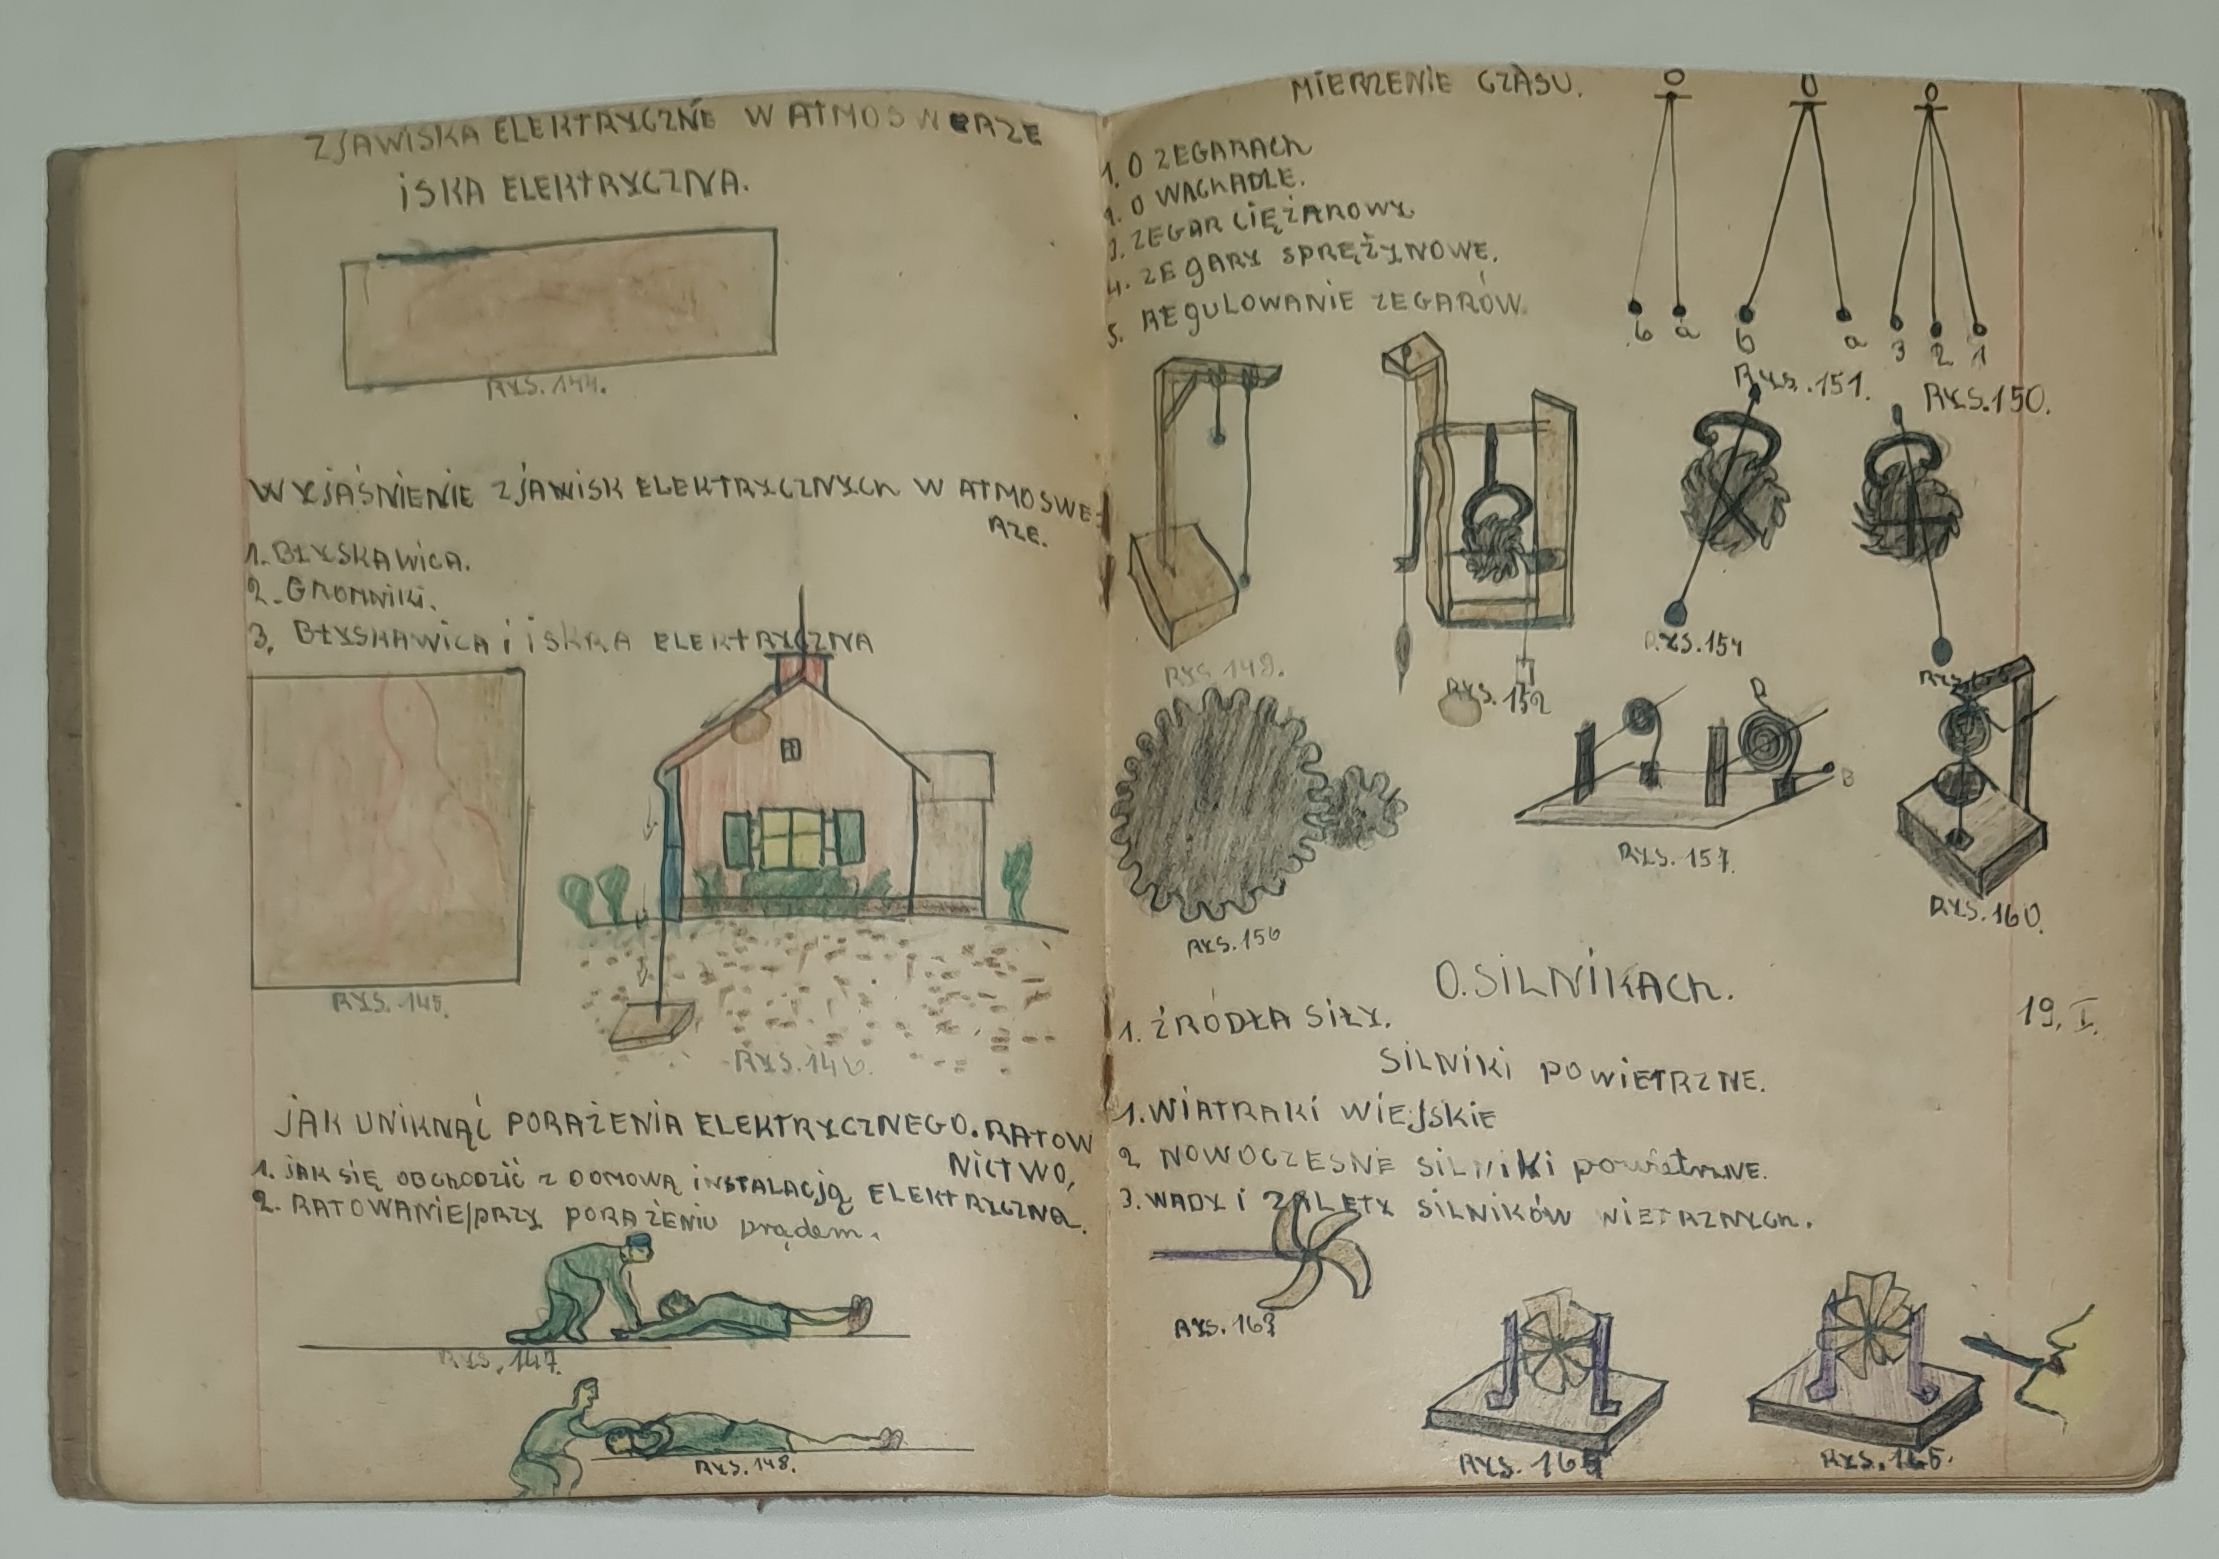 ZJAWISKA ELEKTRYCZNE W ATMOSWERZE
ISKA ELEKTRYCZNA.
RYS. 144.
WYJAŚNIENIE ZJAWISK ELEKTRYCZNYCH W ATMOSWE-
RZE.
1. BŁYSKAWICA.
2. GROMNIKI.
3. BŁYSKAWICA i ISKRA ELEKTRYCZNA
RYS. 145.
RYS. 146.
JAK UNIKNĄĆ PORAŻENIA ELEKTRYCZNEGO. RATOW
NICTWO,
1. JAK SIĘ OBCHODZIĆ Z DOMOWĄ INSTALACJĄ ELEKTRYCZNĄ.
2. RATOWANIE/PRZY PORAŻENIU prądem.
RYS. 147.
RYS. 148.
MIERZENIE CZASU.
1. O ZEGARACH
2. O WACHADLE.
3. ZEGAR CIĘŻAROWY.
4. ZEGARY SPRĘŻYNOWE.
5. REGULOWANIE ZEGARÓW.
b a b a 3 2 1
RYS. 151. RYS. 150.
RYS. 149.
RYS. 152
RYS. 154
RYS. 156
B
RYS. 157.
RYS. 160.
O. SILNIKACH.
19. I.
1. ŹRÓDŁA SIŁY.
SILNIKI POWIETRZNE.
1. WIATRAKI WIEJSKIE
2 NOWOCZESNE SILNIKI POWIETRZNE.
3. WADY I ZALETY SILNIKÓW WIETRZNYCH.
RYS. 163
RYS. 164
RYS. 165.